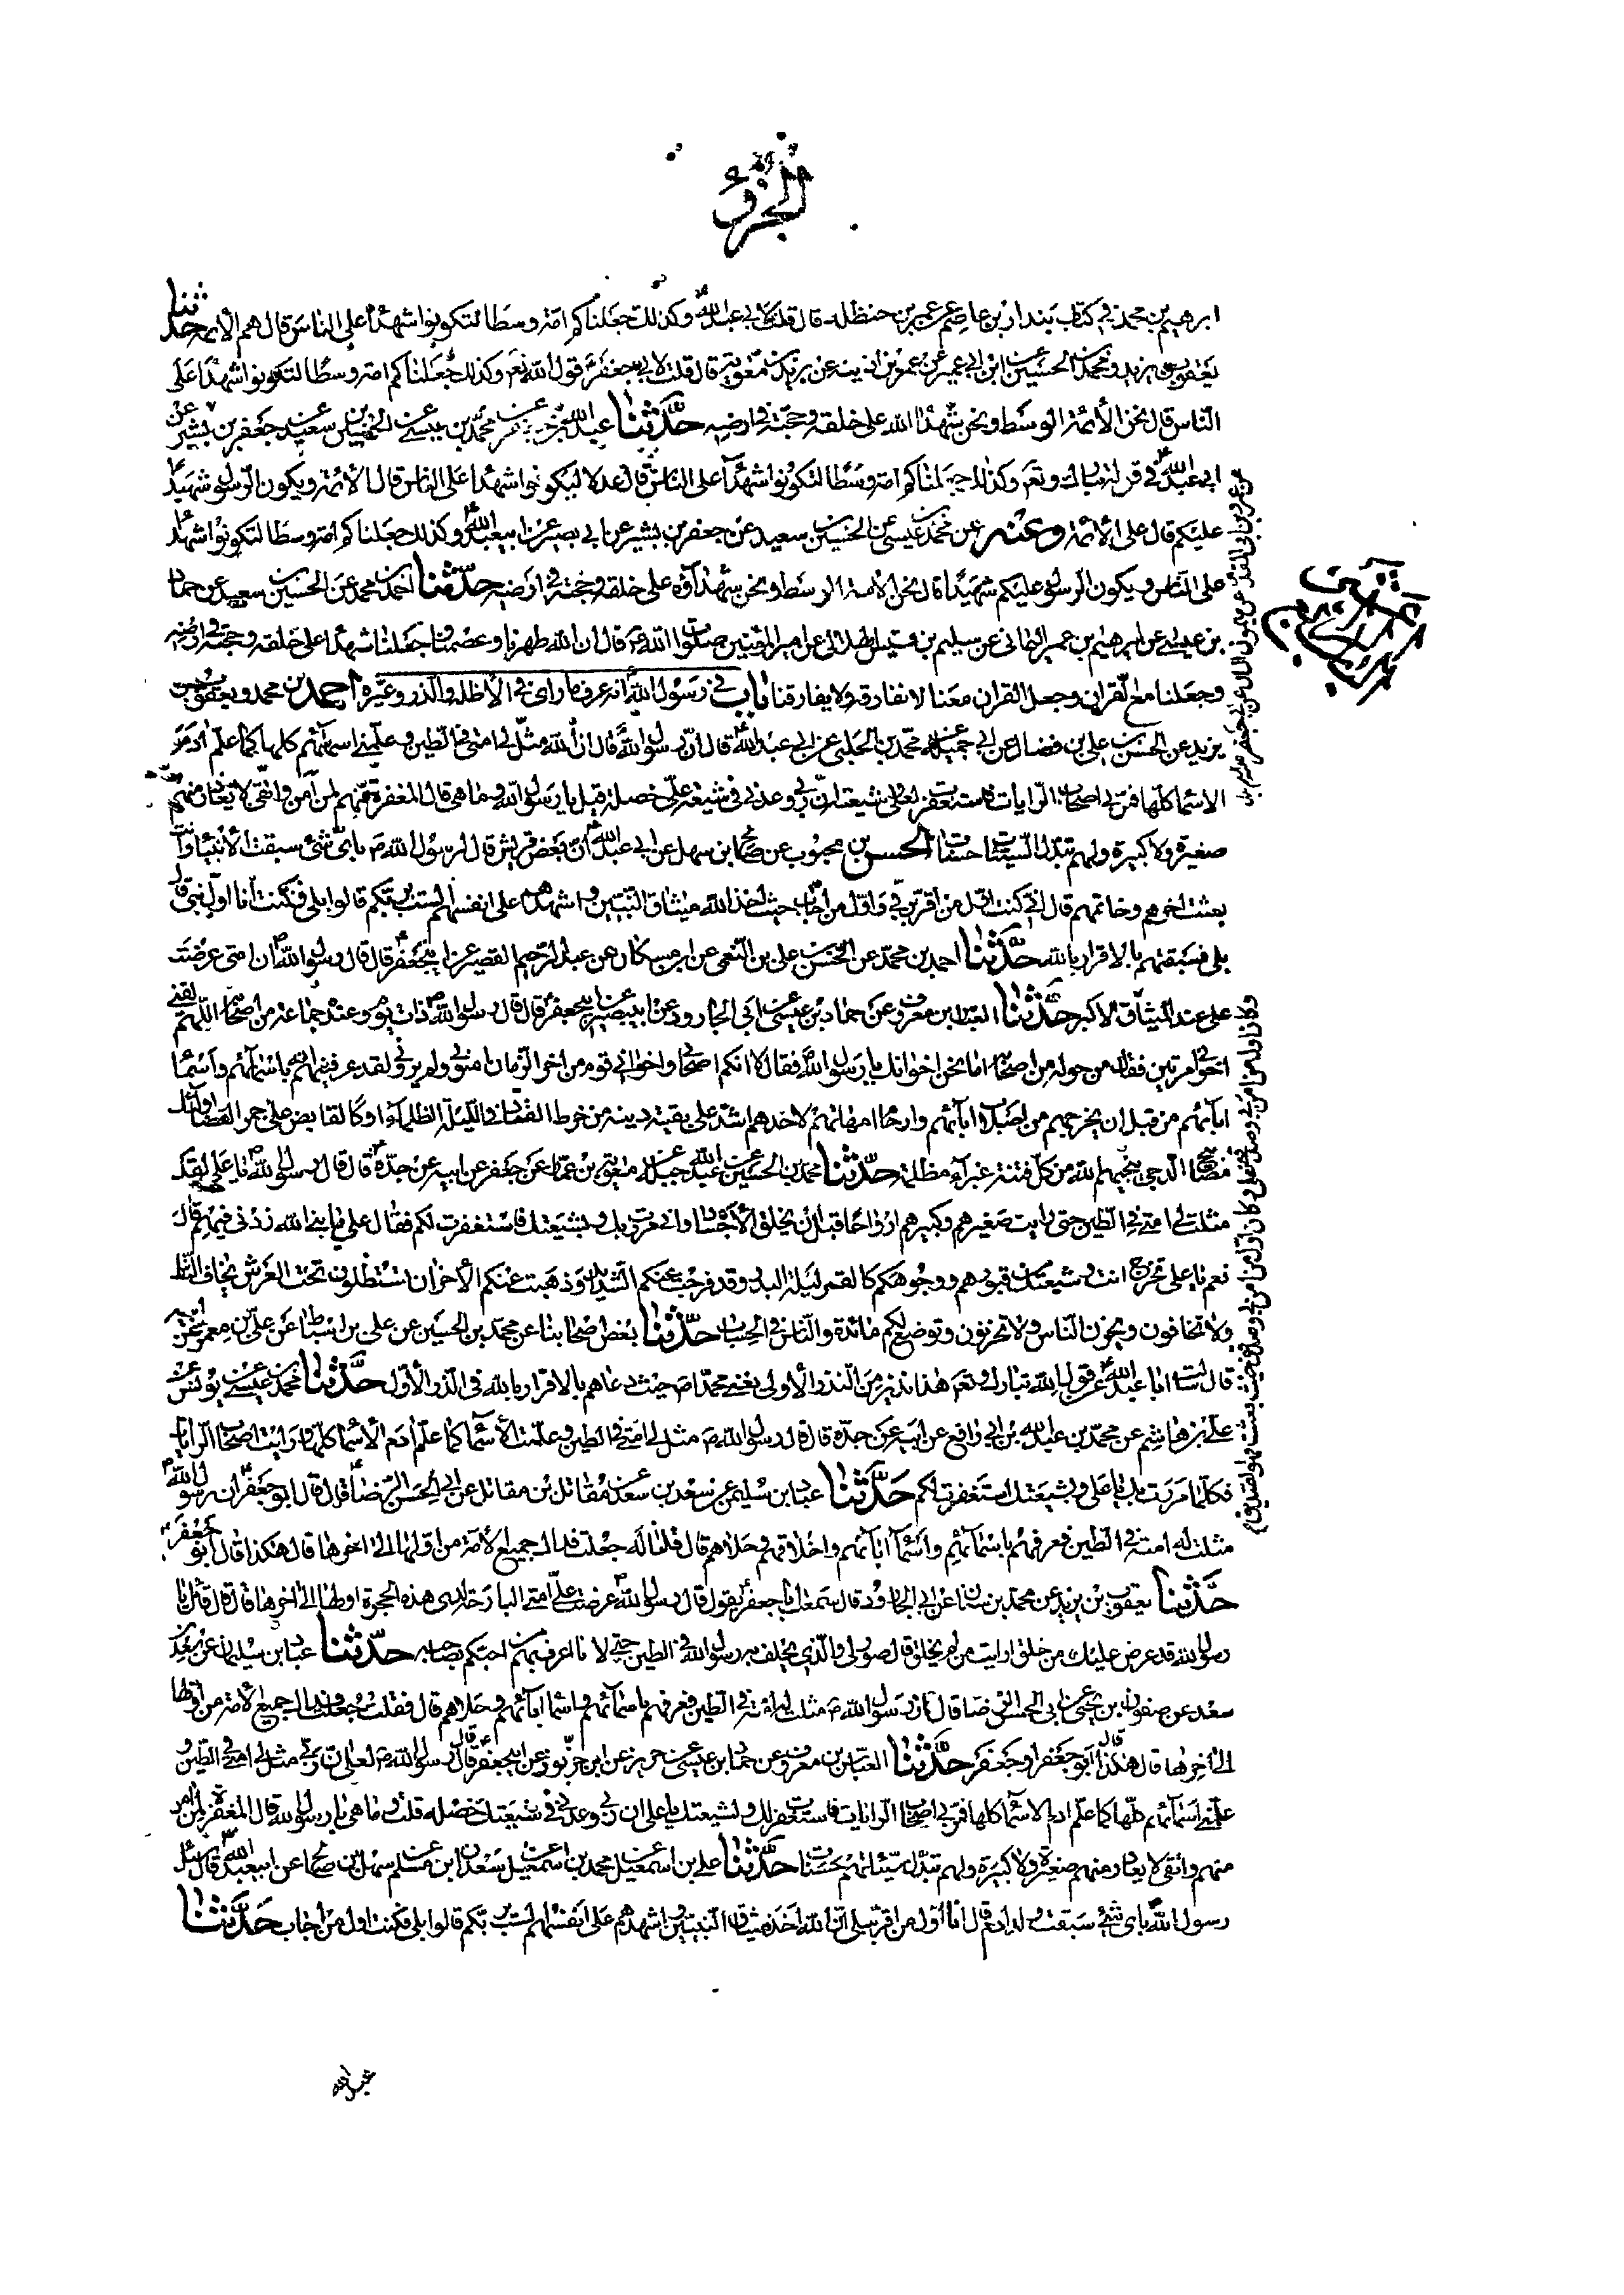 الجزؤ
ابرهيم بن محمد في كتاب بندار بن عاصم عن عمر بن حنظلة قال قلت لابي عبد الله ع وكذلك جعلناكم امة وسطا لتكونوا شهداء على الناس قال هم الائمه حدثنا
يعقوب بن يزيد ومحمد بن الحسين عن ابن ابي عمير عن عمر بن اذينه عن بريد بن معوية قال قلت لابي جعفر ع قول الله تعم وكذلك جعلناكم امة وسطا لتكونوا شهداء على
الناس قال نحن الأئمة الوسط ونحن شهداء الله على خلقه وحجته في ارضه حدثنا عبد الله بن محمد عن محمد بن عيسى عن الحسين بن سعيد عن جعفر بن بشير عن
ابي عبد الله ع في قوله تبارك وتعم وكذلك جعلناكم امة وسطا لتكونوا شهداء على الناس قال عدلا ليكونوا شهداء على الناس قال الائمة ويكون الرسول شهيدا
عليكم قال على الائمة وعنه عن محمد بن عيسى عن الحسين بن سعيد عن جعفر بن بشير عن ابي بصير عن ابيعبد الله ع وكذلك جعلناكم امة وسطا لتكونوا شهداء
على الناس ويكون الرسول عليكم شهيدا قال نحن الامة الوسط ونحن شهداؤه على خلقه وحجته في ارضه حدثنا احمد بن محمد عن الحسين بن سعيد عن حماد
بن عيسى عن ابرهيم بن عمر اليماني عن سليم بن قيس الهلالي عن امير المؤمنين صلوات الله عليه قال ان الله طهرنا وعصمنا وجعلنا شهداء على خلقه وحجته في ارضه
وجعلنا مع القران وجعل القران معنا لا نفارقه ولا يفارقنا باب في رسول الله ص انه عرف ما رأى في الأظلة والذر وغيره احمد بن محمد ويعقوب بن
يزيد عن الحسن بن علي بن فضال عن ابي جميله عن محمد بن الحلبي عن ابي عبد الله ع قال ان رسول الله ص قال ان الله مثل لي امتي في الطين وعلمني اسمائهم كلها كما علم ادم
الاسماء كلها فمر بي اصحاب الرايات فاستغفرت لعلي وشيعته ان ربي وعدني في شيعة علي خصلة قيل يا رسول الله وما هي قال المغفرة منهم لمن آمن واتقى لا يغادر منهم
صغيرة ولا كبيرة ولهم تبدل السيئات حسنات الحسن بن محبوب عن صالح بن سهل عن ابي عبد الله ع ان بعض قريش قال لرسول الله ص باي شئ سبقت الأنبياء وانت
بعثت اخرهم وخاتمهم قال اني كنت اول من اقر بربي واول من اجاب حيث اخذ الله ميثاق النبيين واشهدهم على انفسهم الست بربكم قالوا بلى فكنت انا اول نبي قال
بلى فسبقتهم بالاقرار بالله حدثنا احمد بن محمد عن الحسن بن علي بن النعمان عن ابن مسكان عن عبد الرحيم القصير عن ابي جعفر ع قال قال رسول الله ص ان امتي عرضت
علي عند الميثاق الاكبر حدثنا العباس بن معروف عن حماد بن عيسى عن ابي الجارود عن ابي بصير عن ابي جعفر ع قال قال رسول الله ص ذات يوم وعنده جماعة من اصحابه اللهم لقني
اخواني مرتين فقال من حوله من اصحابه اما نحن اخوانك يا رسول الله ص فقال لا انكم اصحابي واخواني قوم من اخر الزمان امنوا بي ولم يروني ولقد عرفنيهم الله باسمائهم واسماء
ابائهم من قبل ان يخرجهم من اصلاب ابائهم وارحام امهاتهم لاحدهم اشد على بقية دينه من خرط القتاد في الليلة الظلماء او كالقابض على جمر الغضا اولئك
مصابيح الدجى ينجيهم الله من كل فتنة غبراء مظلمة حدثنا محمد بن الحسين عن عبد الله بن جبله عن معوية بن عمار عن جعفر عن ابيه عن جده ع قال قال رسول الله ص يا علي لقد
مثلت لي امتي في الطين حتى رايت صغيرهم وكبيرهم ارواحا قبل ان يخلق الأجساد واني مررت بك وبشيعتك فاستغفرت لكم فقال علي يا نبي الله زدني فيهم قال
نعم يا علي تخرج انت وشيعتك من قبورهم ووجوهكم كالقمر ليلة البدر وقد فرجت عنكم الشدايد وذهبت عنكم الأحزان تستظلون تحت العرش يخاف الناس
ولا تخافون ويحزن الناس ولا تحزنون وتوضع لكم مائدة والناس في الحساب حدثنا بعض اصحابنا عن محمد بن الحسين عن علي بن اسباط عن علي بن معمر عن ابيه
قال سالت ابا عبد الله ع عن قول الله تبارك وتعم هذا نذير من النذر الأولى يعني محمدا ص حيث دعاهم بالاقرار بالله في الذر الأول حدثنا محمد بن عيسى عن يونس عن
علي بن هاشم عن محمد بن عبيد الله بن ابي رافع عن ابيه عن جده قال قال رسول الله ص مثل لي امتي في الطين وعلمت الأسماء كما علم ادم الأسماء كلها ورايت اصحاب الرايات
فكلما مررت بك يا علي وبشيعتك استغفرت لكم حدثنا عباد بن سليمن عن سعد بن سعد عن مقاتل بن مقاتل عن ابي الحسن الرضا ع قال قال ابو جعفر ع ان رسول الله ص
مثلت له امته في الطين فعرفهم باسمائهم واسماء ابائهم واخلاقهم وحلاهم قال قلنا له جعلت فداك جميع الامة من اولها الى اخرها قال هكذا قال ابو جعفر ع
حدثنا يعقوب بن يزيد عن محمد بن سنان عن ابي الجارود قال سمعت ابا جعفر ع يقول قال رسول الله ص عرضت علي امتي البارحة لدى هذه الحجرة اولها الى اخرها قال قال قائل يا
رسول الله قد عرض عليك من خلق ارايت من لم يخلق قال صور لي والذي يحلف به رسول الله في الطين حتى لانا اعرف بهم من احدكم بصاحبه حدثنا عباد بن سليمان عن سعد بن
سعد عن صفوان بن يحيى عن ابي الحسن الرضا قال ان رسول الله ص مثلت له امته في الطين فعرفهم باسمائهم واسماء ابائهم وحلاهم قال فقلت جعلت فداك جميع الامة من اولها
الى اخرها قال هكذا قال ابو جعفر او جعفر حدثنا العباس بن معروف عن حماد بن عيسى عن حريز عن ابن خربوذ عن ابي جعفر ع قال قال رسول الله ص لعلي ان ربي مثل لي امتي في الطين و
علمني اسمائهم كلها كما علم ادم الاسماء كلها فمر بي اصحاب الرايات فاستغفرت لك ولشيعتك يا علي ان ربي وعدني في شيعتك خصله قلت وما هي يا رسول الله قال المغفرة لمن امن
منهم واتقى لا يغادر منهم صغيرة ولا كبيرة ولهم تبدل سيئاتهم حسنات حدثنا علي بن اسمعيل عن محمد بن اسمعيل عن سعدان بن مسلم عن سهل بن صالح عن ابيعبد الله ع قال سئل
رسول الله ص باي شئ سبقت ولد ادم قال انا اول من اقر ببلى ان الله اخذ ميثاق النبيين واشهدهم على انفسهم الست بربكم قالوا بلى فكنت اول من اجاب حدثنا
عبد الله